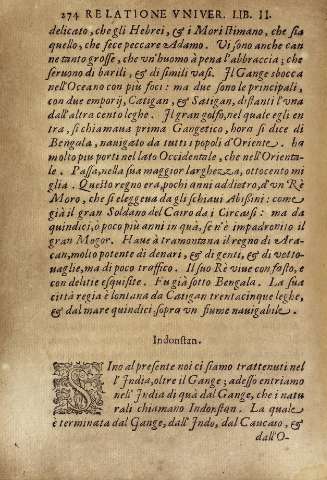 274 RELATIONE VNIVER. LIB. II.
delicato, che gli Hebrei, & i Mori stimano, che sia
quello, che fece peccare Adamo. Vi sono anche can
ne tanto grosse, che vn'huomo à pena l'abbraccia; che
seruono di barili, & di simili vasi. Il Gange sbocca
nell'Oceano con più foci: ma due sono le principali,
con due emporij, Catigan, & Satigan, distanti l'vna
dall'altra cento leghe. Il gran golfo, nel quale egli en
tra, si chiamaua prima Gangetico, hora si dice di
Bengala, nauigato da tutti i popoli d'Oriente. ha
molto piu porti nel lato Occidentale, che nell'Orienta-
le. Passa, nella sua maggior larghezza, ottocento mi
glia. Questo regno era, pochi anni addietro, d'vn Rè
Moro, che si eleggeua da gli schiaui Abissini: come
già il gran Soldano del Cairo da i Circassi: ma da
quindici, ò poco più anni in qua, se n'è impadronito il
gran Mogor. Haue à tramontana il regno di Ara-
can, molto potente di denari, & di genti, & di vetto-
uaglie, ma di poco traffico. Il suo Rè viue con fasto, e
con delitie esquisite. Fu già sotto Bengala. La sua
città regia è lontana da Catigan trentacinque leghe,
& dal mare quindici sopra vn fiume nauigabile.
Indonstan.
SIno al presente noi ci siamo trattenuti nel
l'India, oltre il Gange; adesso entriamo
nell'India di quà dal Gange, che i natu
rali chiamano Indonstan. La quale
è terminata dal Gange, dall'Indo, dal Caucaso, &
dall'O-